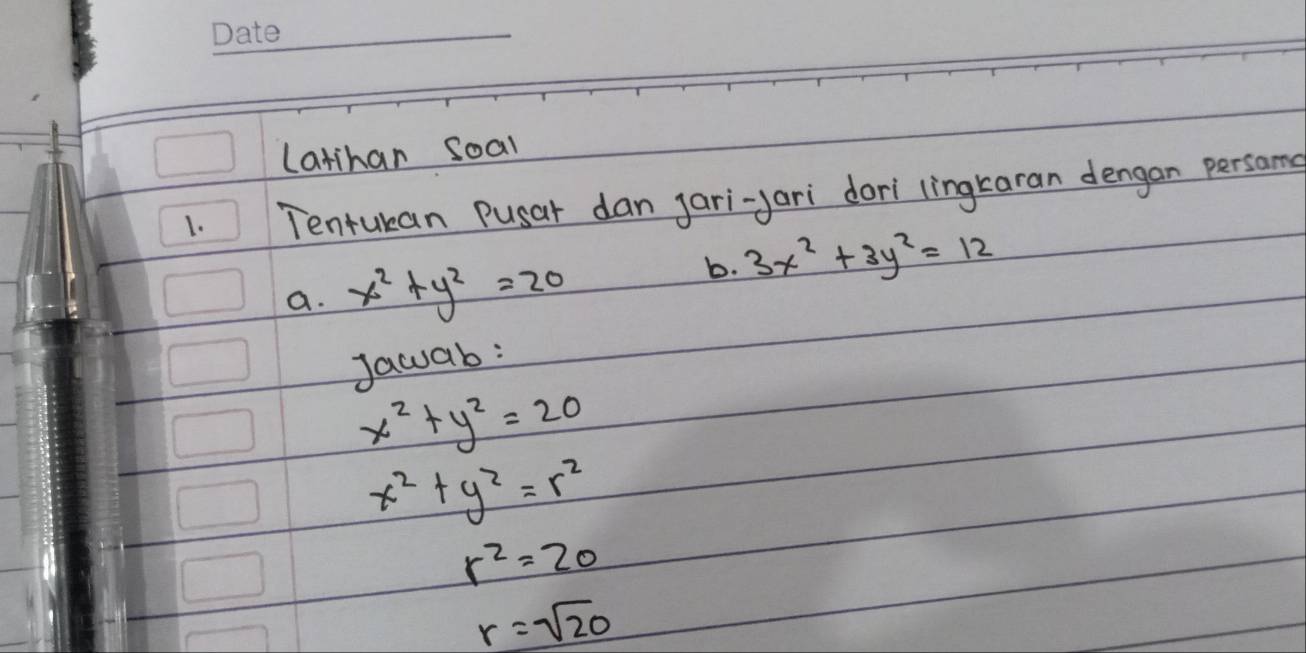 Date
Latihan Soal
1. Tentukan Pusat dan jari-jari dari lingkaran dengan persama
a. x² + y² = 20 b. 3x² + 3y² = 12
Jawab:
x² + y² = 20
x² + y² = r²
r² = 20
r = √20